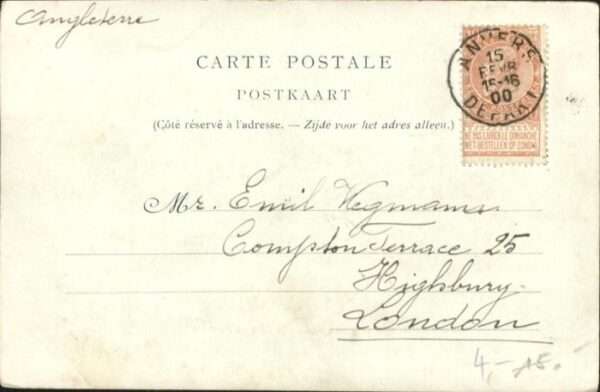 Angleterre
ANVERS
15
FEVR
15-16
00
DEPART
NE PAS LIVRER LE DIMANCHE
NIET BESTELLEN OP ZONDAG
CARTE POSTALE
POSTKAART
(Côté réservé à l'adresse. — Zijde voor het adres alleen.)
Mr. Emil Wegmann
Compton Terrace 25
Highbury.
London
4,- 15.-